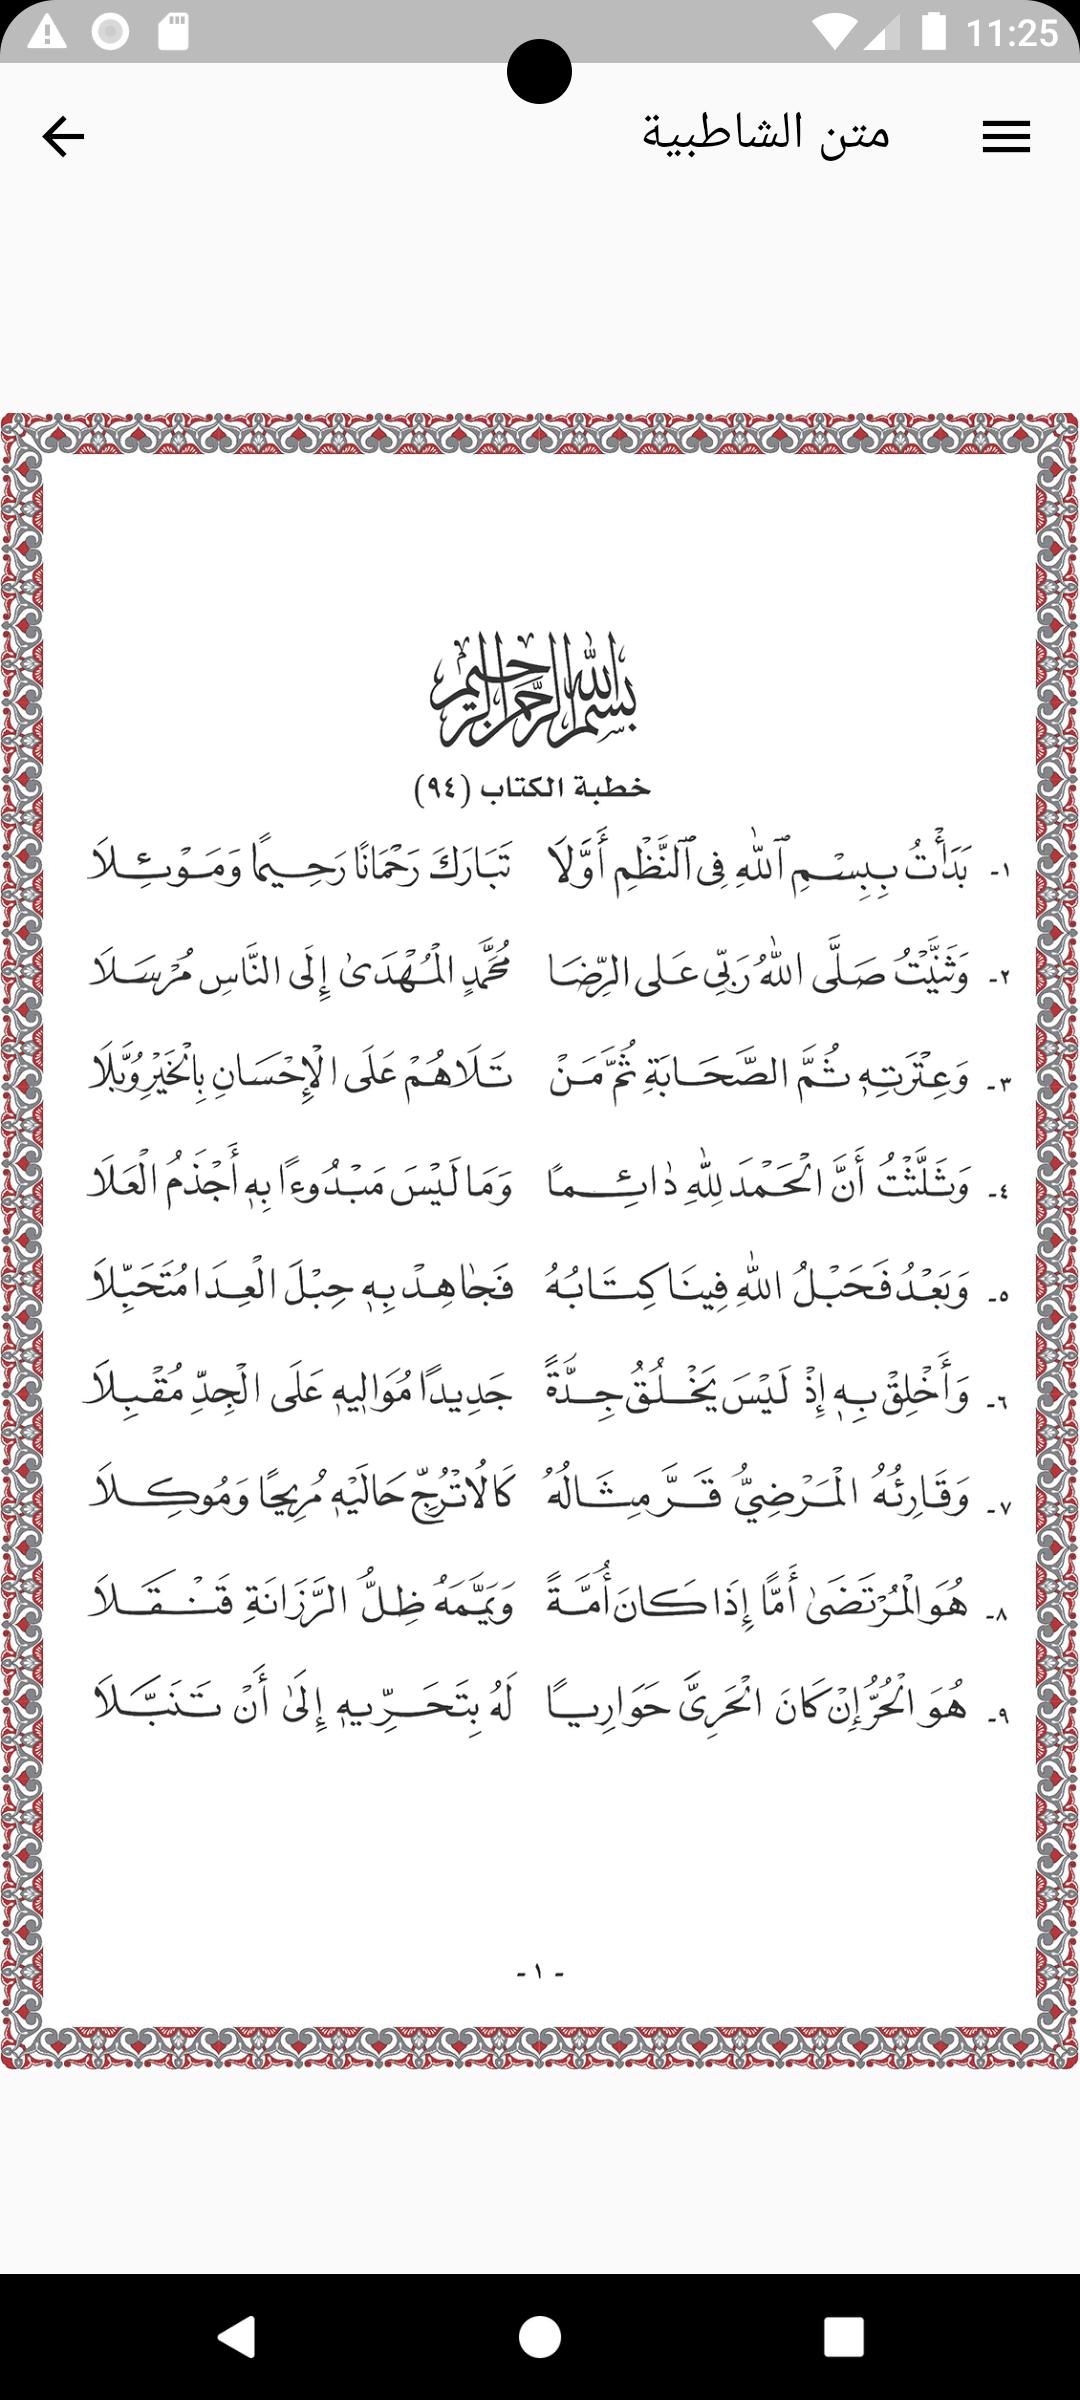 11:25
متن الشاطبية
بسم الله الرحمن الرحيم
خطبة الكتاب (٩٤)
١- بَدَأْتُ بِبِسْمِ ٱللَّهِ فِى ٱلنَّظْمِ أَوَّلَا تَبَارَكَ رَحْمَانًا رَحِيمًا وَمَوْئِلَا
٢- وَثَنَّيْتُ صَلَّى اللَّهُ رَبِّي عَلَى الرِّضَا مُحَمَّدٍ الْمُهْدَىٰ إِلَى النَّاسِ مُرْسَلَا
٣- وَعِتْرَتِهِ ثُمَّ الصَّحَابَةِ ثُمَّ مَنْ تَلَاهُمْ عَلَى الْإِحْسَانِ بِالْخَيْرِ وُبَّلَا
٤- وَثَلَّثْتُ أَنَّ الْحَمْدَ لِلَّهِ دَٰائِمًا وَمَا لَيْسَ مَبْدُوءًا بِهِ أَجْذَمُ الْعَلَا
٥- وَبَعْدُ فَحَبْلُ اللَّهِ فِينَا كِتَابُهُ فَجَاهِدْ بِهِ حِبْلَ الْعِدَا مُتَحَبِّلَا
٦- وَأَخْلِقْ بِهِ إِذْ لَيْسَ يَخْلُقُ جِدَّةً جَدِيدًا مُوَالِيهِ عَلَى الْجِدِّ مُقْبِلَا
٧- وَقَارِئُهُ الْمَرْضِيُّ قَرَّ مِثَالُهُ كَالاُتْرُجِّ حَالَيْهِ مُرِيحًا وَمُوكِلَا
٨- هُوَ الْمُرْتَضَىٰ أَمًّا إِذَا كَانَ أُمَّةً وَيَمَّمَهُ ظِلُّ الرَّزَانَةِ قَنْقَلَا
٩- هُوَ الْحُرُّ إِنْ كَانَ الْحَرِىَّ حَوَارِيًا لَهُ بِتَحَرِّيهِ إِلَىٰ أَنْ تَنَبَّلَا
- ١ -